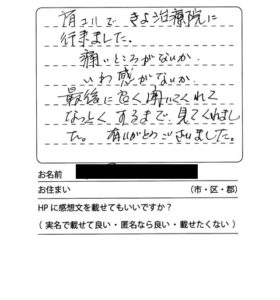 きよう治療院に
行来ました。
痛いところがないか、
いわ感がないか、
最後に良く聞いてくれて
なっとくするまで見てくれまし
た。有いがとうございました。
お名前
お住まい (市・区・郡)
HPに感想文を載せてもいいですか？
( 実名で載せて良い・匿名なら良い・載せたくない )